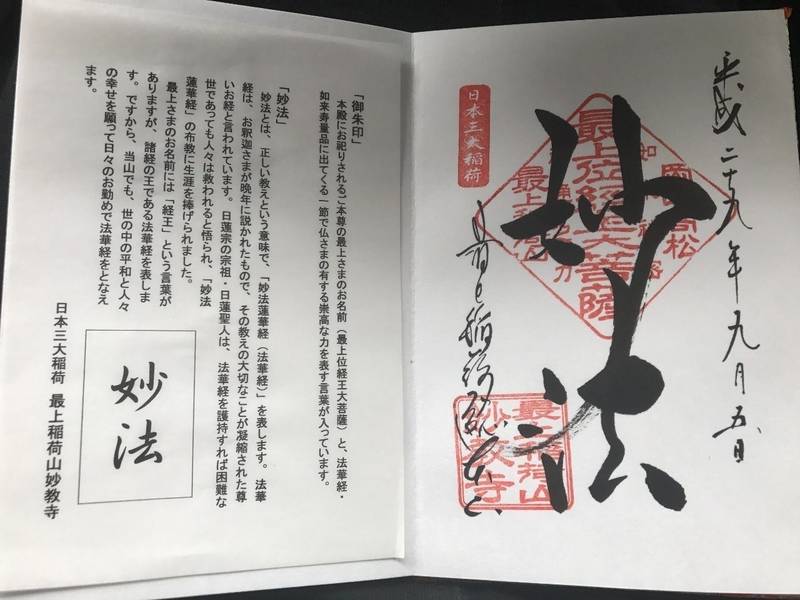 平成二十九年九月五日
妙法
最上位経王大菩薩
日本三大稲荷
最上稲荷総本山
最上稲荷山
妙教寺
「御朱印」
本殿にお祀りされるご本尊の最上さまのお名前（最上位経王大菩薩）と、法華経・
如来寿量品に出てくる一節で仏さまの有する崇高な力を表す言葉が入っています。
「妙法」
妙法とは、正しい教えという意味で、「妙法蓮華経（法華経）」を表します。法華
経は、お釈迦さまが晩年に説かれたもので、その教えの大切なことが凝縮された尊
いお経と言われています。日蓮宗の宗祖・日蓮聖人は、法華経を護持すれば困難な
世であっても人々は救われると悟られ、「妙法
蓮華経」の布教に生涯を捧げられました。
最上さまのお名前には「経王」という言葉が
ありますが、諸経の王である法華経を表しま
す。ですから、当山でも、世の中の平和と人々
の幸せを願って日々のお勤めで法華経をとなえ
ます。
妙法
日本三大稲荷 最上稲荷山妙教寺